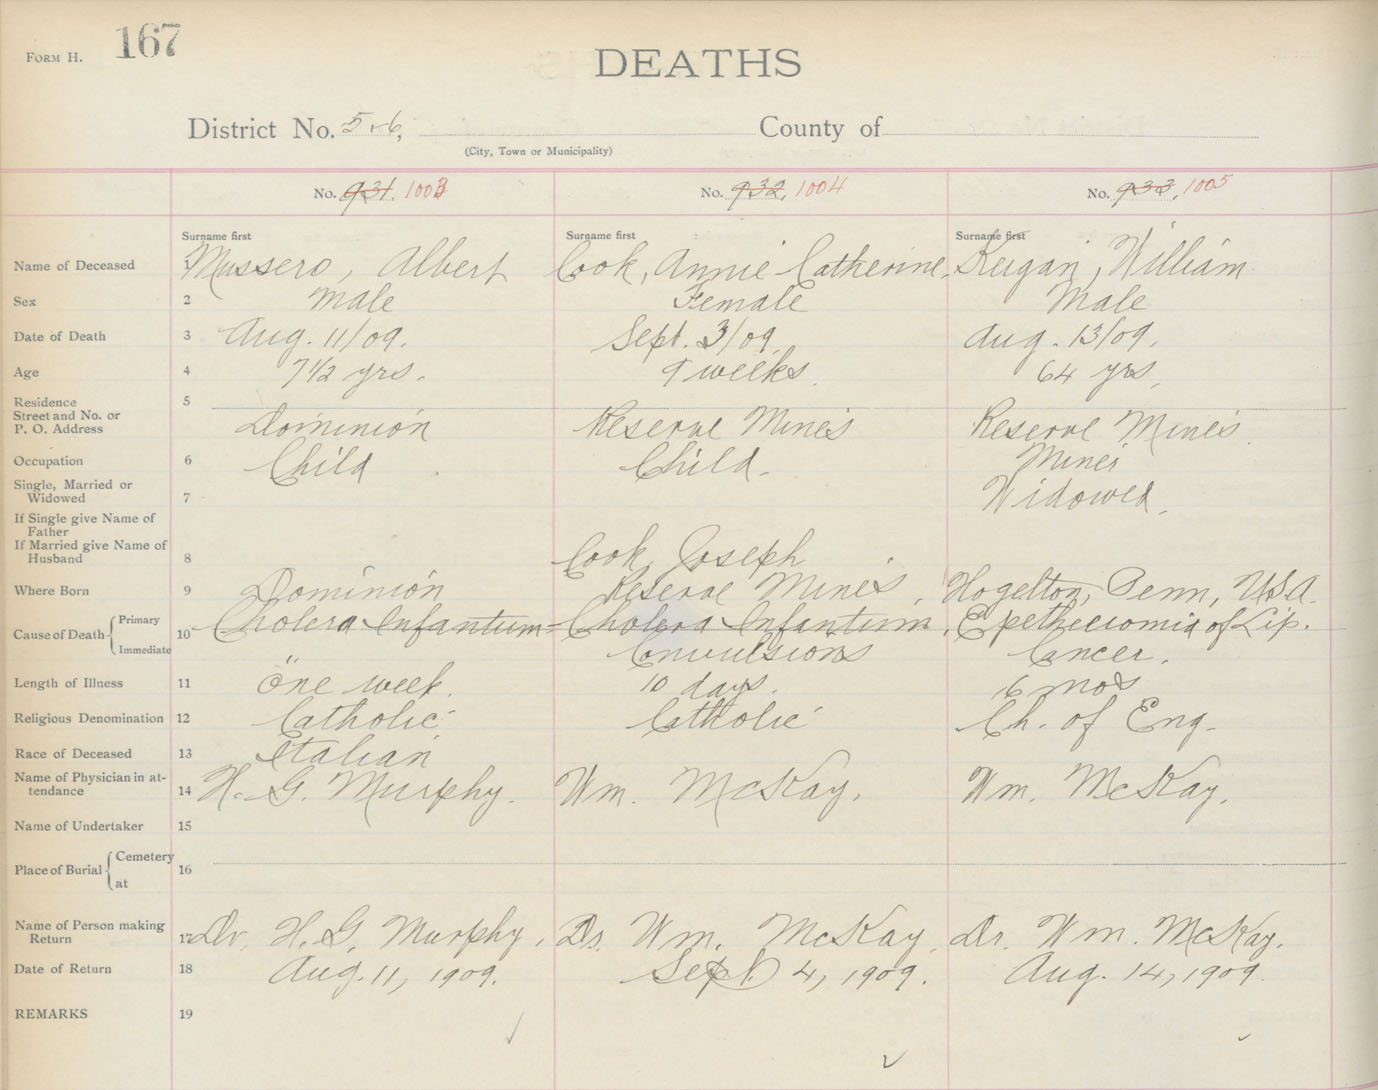 FORM H. 167
DEATHS
District No. 5-6, County of
(City, Town or Municipality)
No. 931. 1003 No. 932, 1004 No. 933, 1005
Surname first Surname first Surname first
Name of Deceased Mussero, Albert Cook, Annie Catherine, Keigan, William
Sex 2 Male Female Male
Date of Death 3 Aug. 11/09. Sept. 3/09 Aug. 13/09.
Age 4 7 1/2 yrs. 9 weeks 64 yrs,
Residence 5
Street and No. or
P. O. Address Dominion Reserve Mines Reserve Mines
Occupation 6 Child Child. Miner
Single, Married or
Widowed 7 Widowed,
If Single give Name of
Father
If Married give Name of
Husband 8 Cook, Joseph
Where Born 9 Dominion Reserve Mines, Hogelton, Penn, USA.
Cause of Death { Primary 10 Cholera Infantum Cholera Infantum, Epetheciomia of Lip.
Immediate " Convulsions Cancer.
Length of Illness 11 One week. 10 days. 6 mos
Religious Denomination 12 Catholic Catholic Ch. of Eng.
Race of Deceased 13 Italian
Name of Physician in at-
tendance 14 H. G. Murphy. Wm. McKay, Wm. McKay,
Name of Undertaker 15
Place of Burial { Cemetery 16
at
Name of Person making
Return 17 Dr. H. G. Murphy, Dr. Wm. McKay, Dr. Wm. McKay,
Date of Return 18 Aug. 11, 1909. Sept. 4, 1909. Aug. 14, 1909.
REMARKS 19